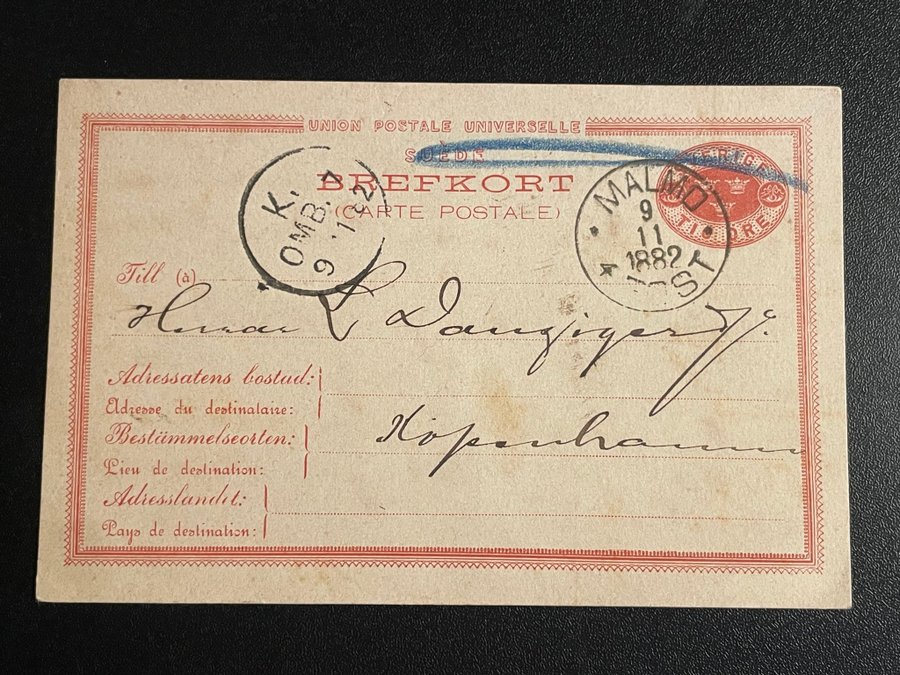 UNION POSTALE UNIVERSELLE
SUÈDE
BREFKORT
(CARTE POSTALE)
TIO ÖRE
MALMÖ
9
11
1882
POST
K.
OMB. 7
9 11 82
Till (à)
Herrar L Danziger
Kopenhamn
Adressatens bostad:
Adresse du destinataire:
Bestämmelseorten:
Lieu de destination:
Adresslandet:
Pays de destination: